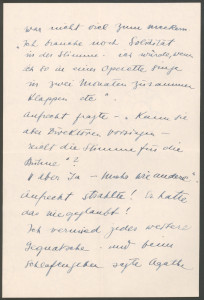 was nicht viel zum merken
"Ich brauche noch Solidität
in der Stimme – ich würde, wenn
ich so in einer Operette singe
in zwei Monaten zusammen
klappen etc".
Aufrecht fragte – "Kann sie
aber Direktoren vorsingen –
reicht die Stimme für die
Bühne"?
"Aber Ja – mehr wie andere".
Aufrecht strahlte! Er hatte
das nie geglaubt!
Ich vermied jedes weitere
– und beim
Schlafengehen sagte Agathe